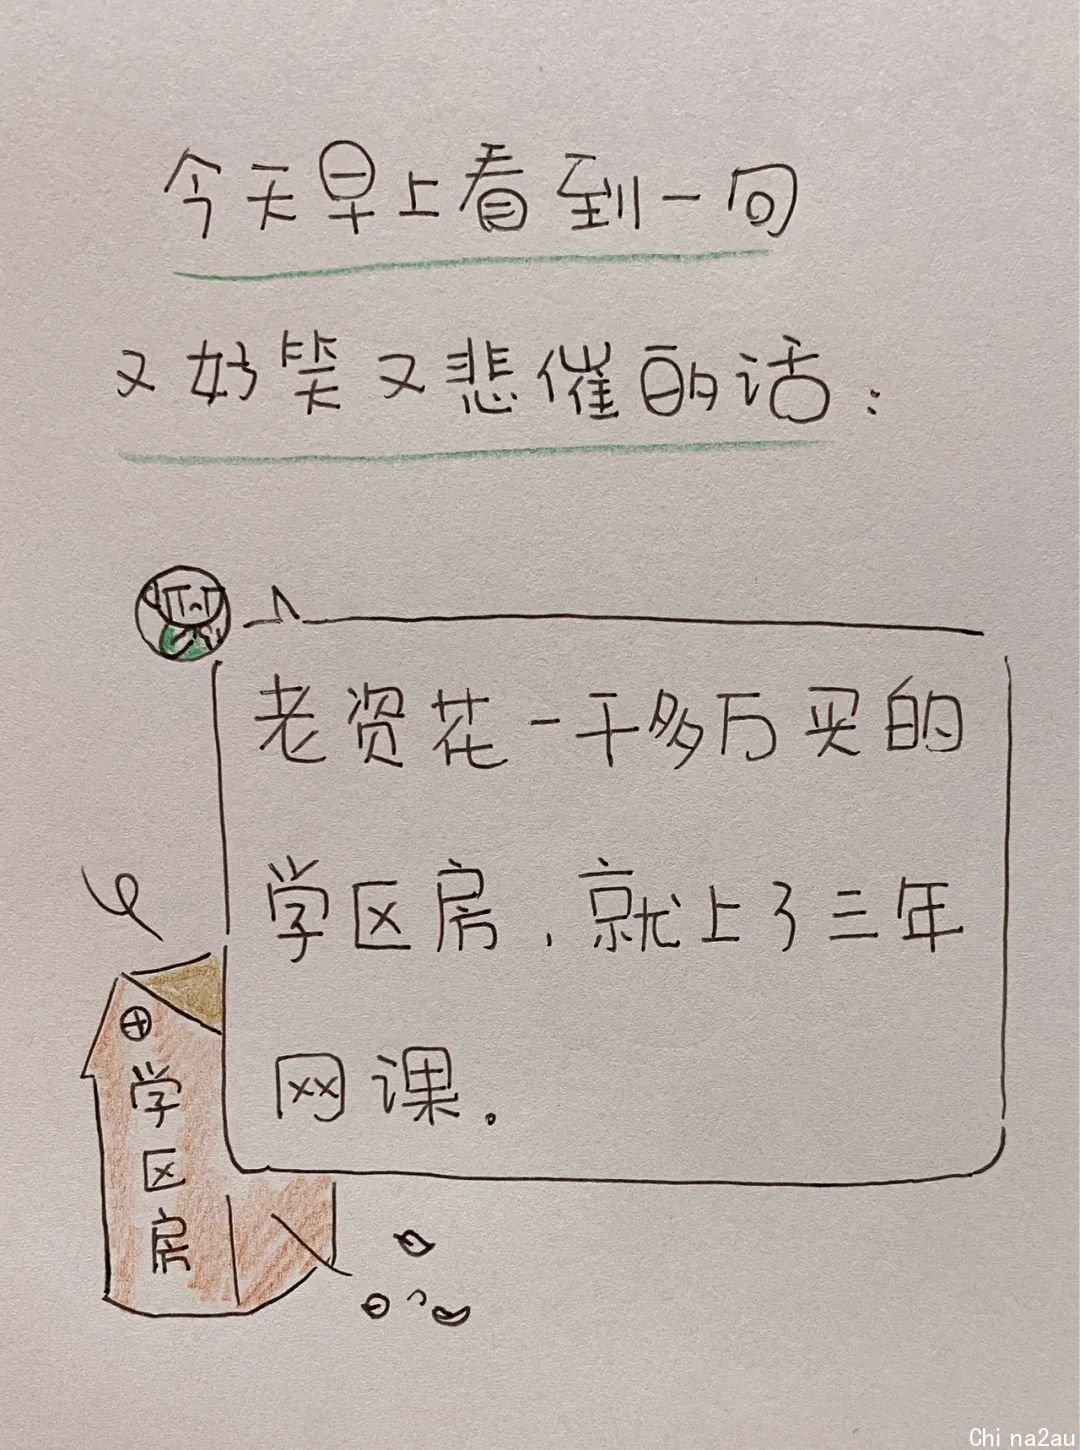 今天早上看到一句
又好笑又悲催的话：
老资花一千多万买的
学区房，就上了三年
网课。
学区房
Chi na2au